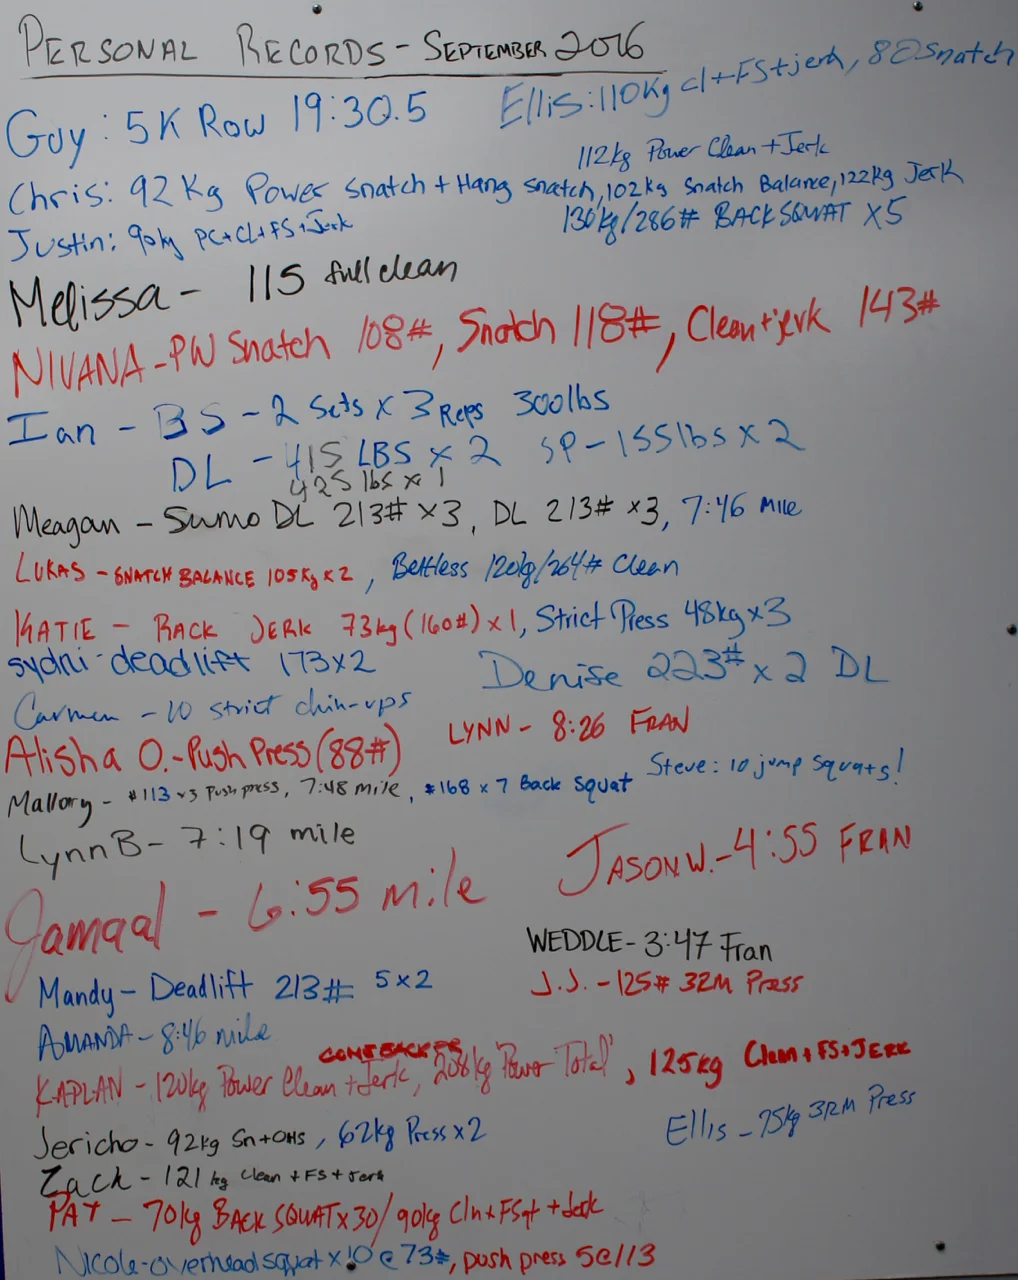 PERSONAL RECORDS - SEPTEMBER 2016
Guy: 5K ROW 19:30.5
Ellis: 110Kg cl+FS+jerk, 80 Snatch
112kg Power Clean + Jerk
Chris: 92 Kg Power Snatch + Hang snatch, 102kg Snatch Balance, 122kg Jerk
130kg/286# BACK SQUAT X5
Justin: 90kg PC+CL+FS+Jerk
Melissa - 115 full clean
NIVANA - PW Snatch 108#, Snatch 118#, Clean + jerk 143#
Ian - BS - 2 Sets x 3 Reps 300lbs
DL - 415 LBS x 2 SP - 155lbs x 2
425 lbs x 1
Meagan - Sumo DL 213# x3, DL 213# x3, 7:46 Mile
LUKAS - SNATCH BALANCE 105Kg x 2, Beltless 120kg/264# Clean
KATIE - RACK JERK 73kg (160#) x 1, Strict Press 48kg x 3
sydni - deadlift 173x2
Denise 223# x 2 DL
Carmen - 10 strict chin-ups
LYNN - 8:26 FRAN
Alisha O. - Push Press (88#)
Steve: 10 jump squats!
Mallory - #113 x3 push press, 7:48 mile, #168 x 7 Back Squat
Lynn B - 7:19 mile
JASON W. - 4:55 FRAN
Jamaal - 6:55 mile
WEDDLE - 3:47 Fran
Mandy - Deadlift 213# 5x2
J.J. - 125# 32M Press
AMANDA - 8:46 mile
COMEBACK PR
KAPLAN - 120kg Power Clean + Jerk, 208kg 'Power Total', 125kg Clean + FS + JERK
Jericho - 92kg Sn+OHS, 62kg Press x2
Ellis - 75kg 32M Press
Zack - 121 kg Clean + FS + Jerk
PAT - 70kg BACK SQUAT x 30/ 90kg Cln + FSqt + Jerk
Nicole - overhead squat x 10 @ 73#, push press 5@113